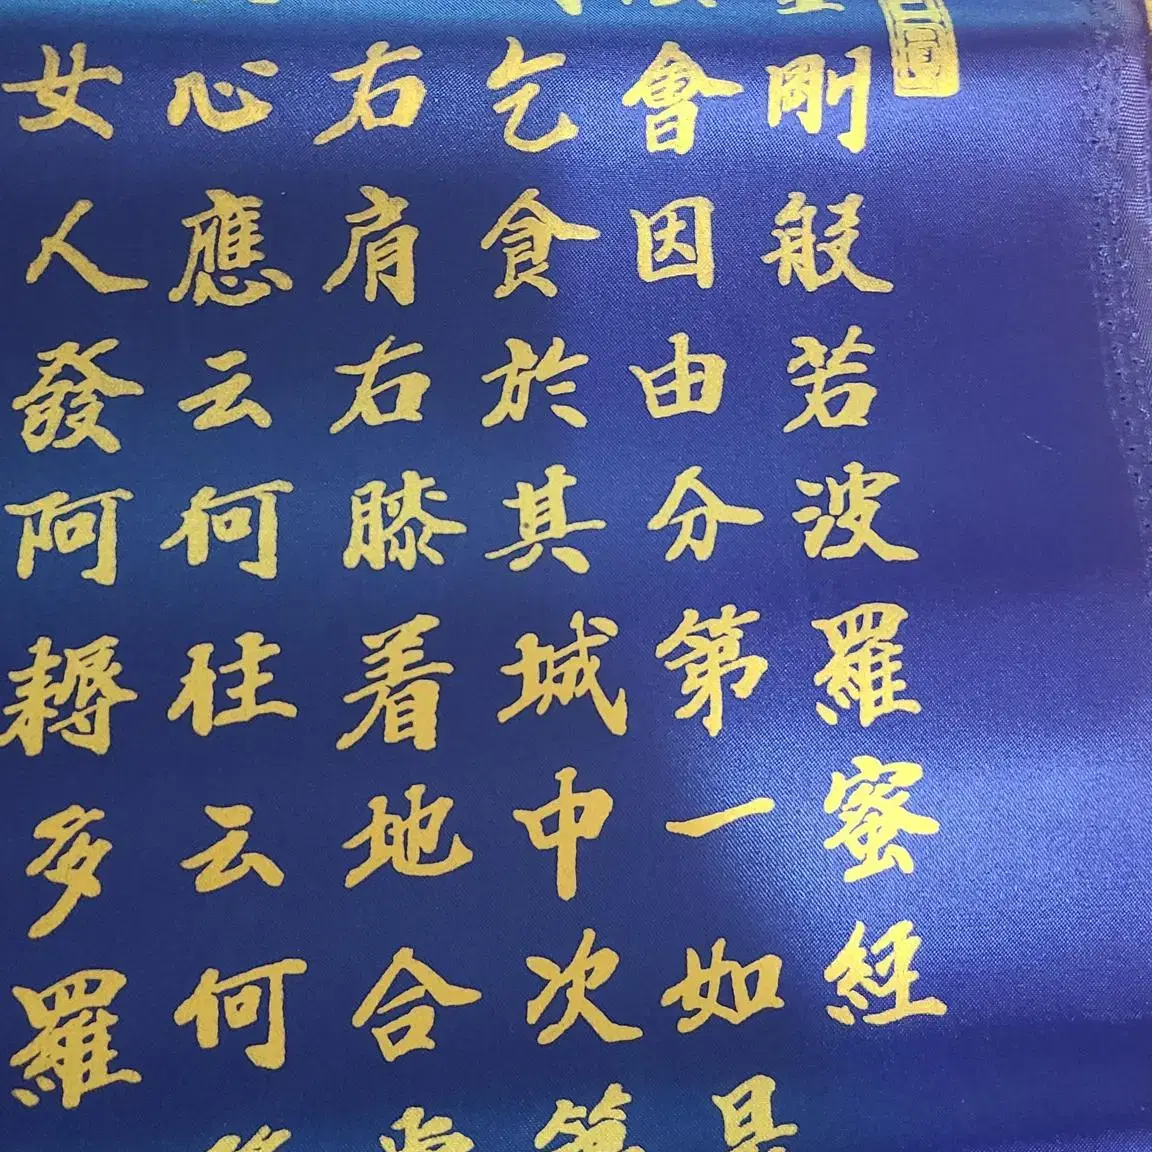 剛般若波羅蜜經
會因由分第一如是
乞食於其城中次第
右肩右膝着地合掌
心應云何住云何
女人發阿耨多羅